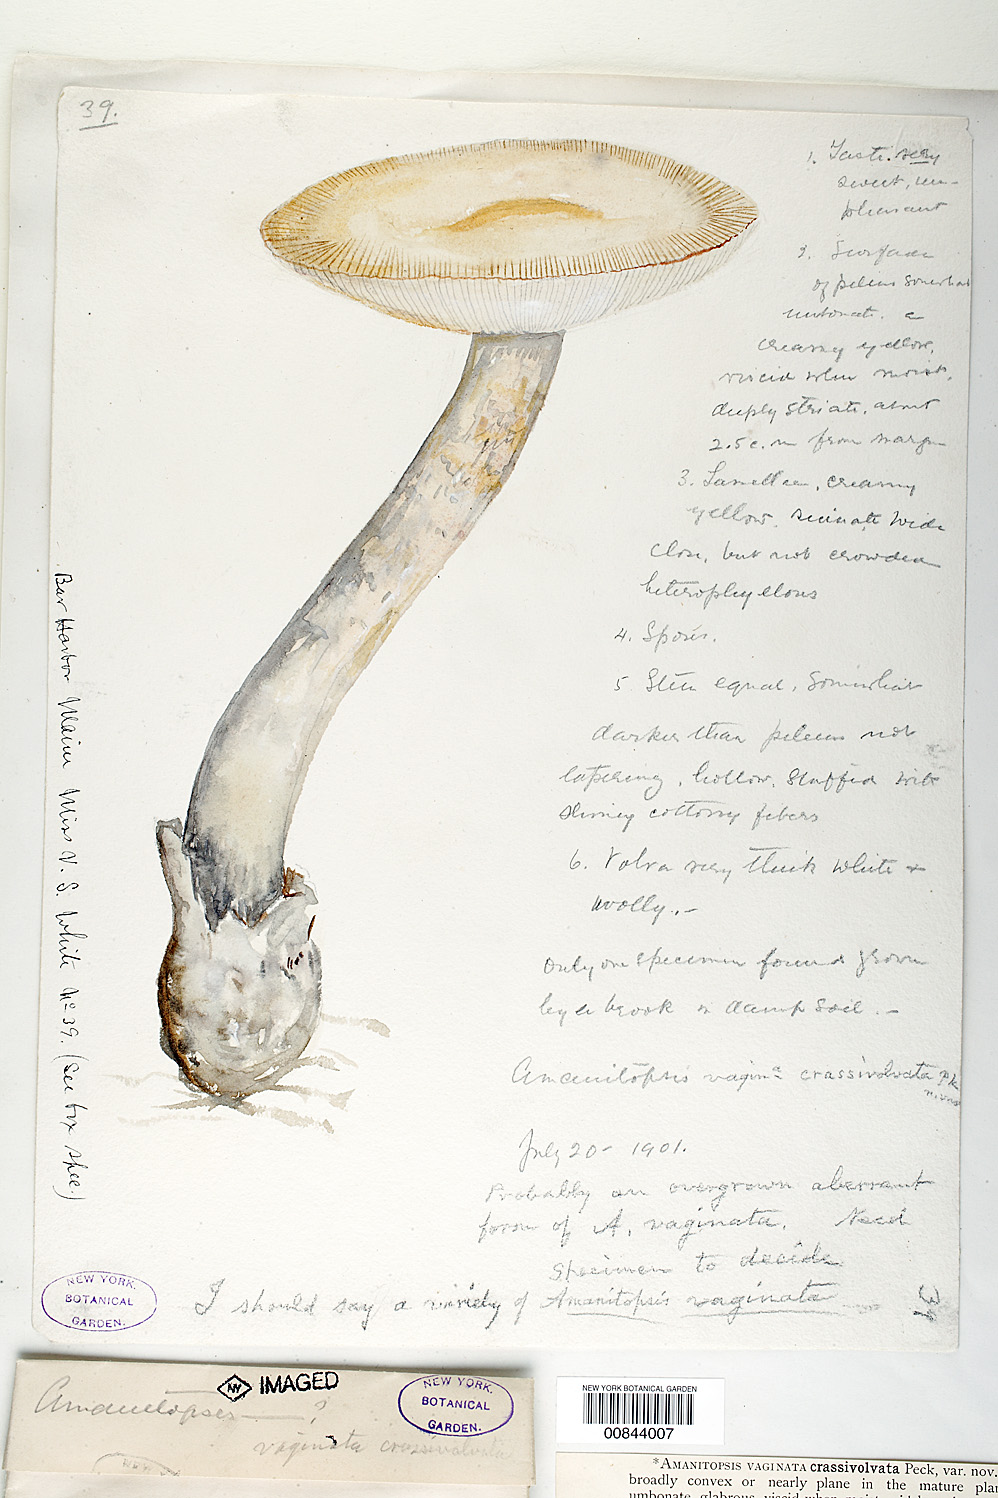 39.
1. Taste very
sweet, un-
pleasant
2. Surface
of pileus somewhat
umbonate. a
creamy yellow,
viscid when moist,
deeply striate, about
2.5 c.m from margin
3. Lamellae, creamy
yellow, wide
close, but not crowded
heterophyllous
4. Spores.
5 Stem equal, somewhat
darker than pileus not
tapering, hollow, stuffed with
slimey cottony fibers
6. Volva very thick white +
woolly.-
Only one specimen found grown
by a brook in damp soil.-
Amanitopsis vagina crassivolvata Pk
n. var
July 20- 1901.
Probably an overgrown aberrant
form of A. vaginata. Need
specimen to decide
I should say a variety of Amanitopsis vaginata
39
Bar Harbor Maine Miss V. S. White No 39. (See box spec.)
NEW YORK
BOTANICAL
GARDEN.
Amanitopsis — ?
vaginata crassivolvata
NY IMAGED
NEW YORK
BOTANICAL
GARDEN.
NEW YORK BOTANICAL GARDEN
00844007
*AMANITOPSIS VAGINATA crassivolvata Peck, var. nov.
broadly convex or nearly plane in the mature plan
umbonate, glabrous, viscid when moist